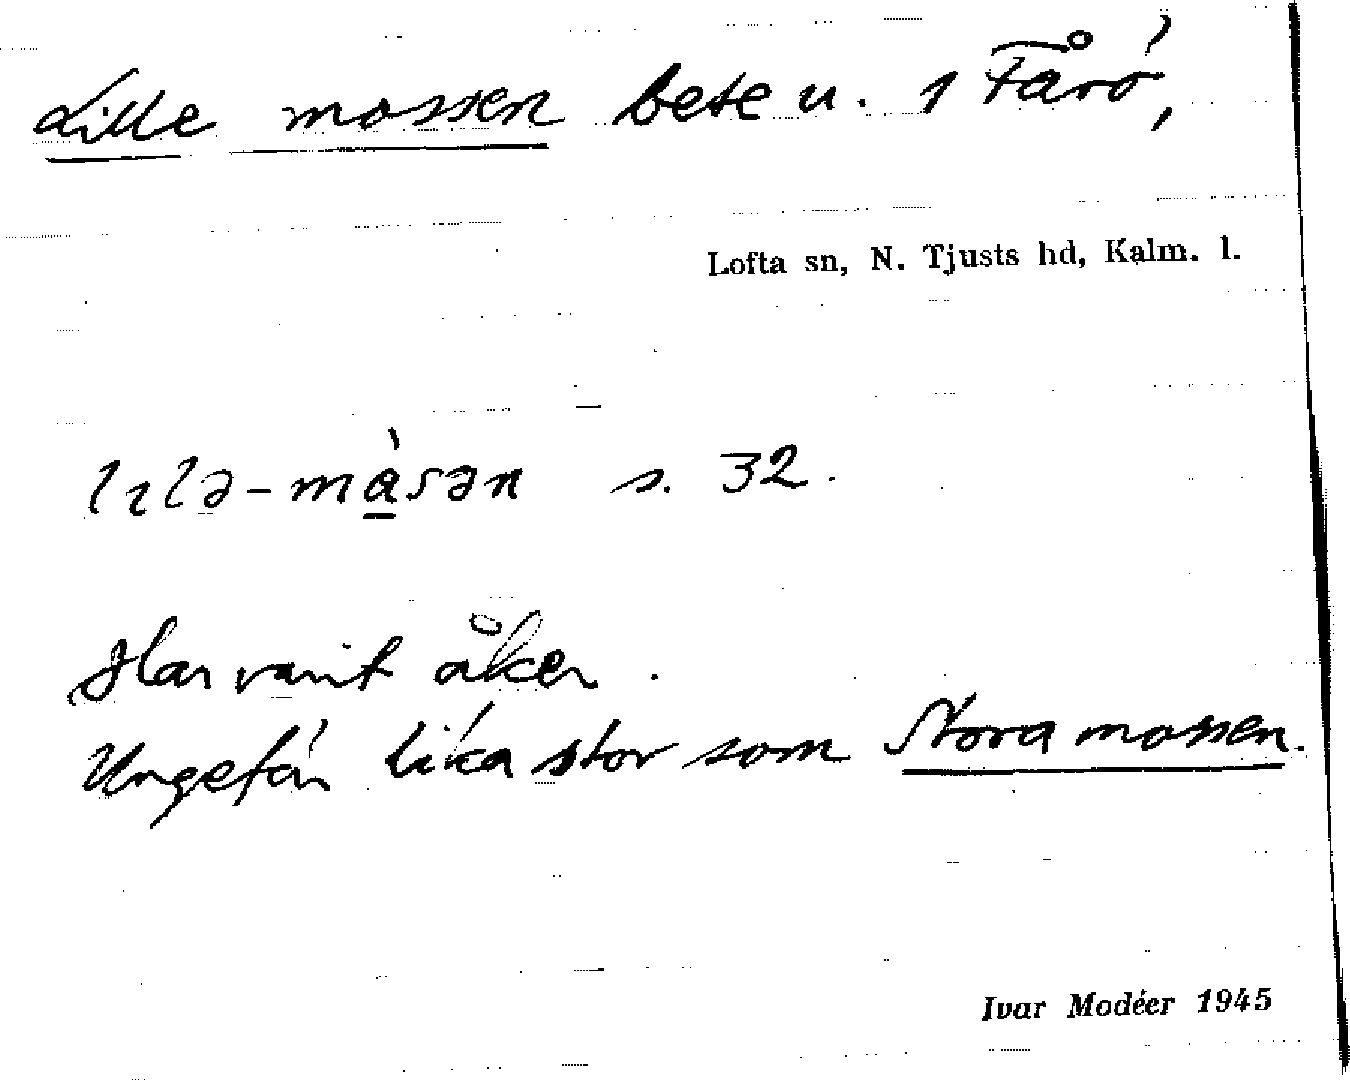 Lille mossen bete u. 1 Fårö,
Lofta sn, N. Tjusts hd, Kalm. l.
lılə-màsən s. 32.
Har varit åker.
Ungefär lika stor som Stora mossen.
Ivar Modéer 1945